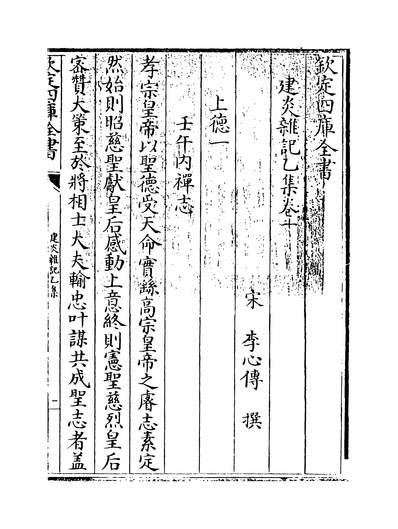 欽定四庫全書
建炎雜記乙集卷一
宋 李心傳 撰
上德一
壬午内禪志
孝宗皇帝以聖德受天命實繇高宗皇帝之睿志素定
然始則昭慈聖獻皇后感動上意終則憲聖慈烈皇后
密贊大策至於將相士大夫輸忠叶謀共成聖志者蓋
欽定四庫全書 建炎雜記乙集 一